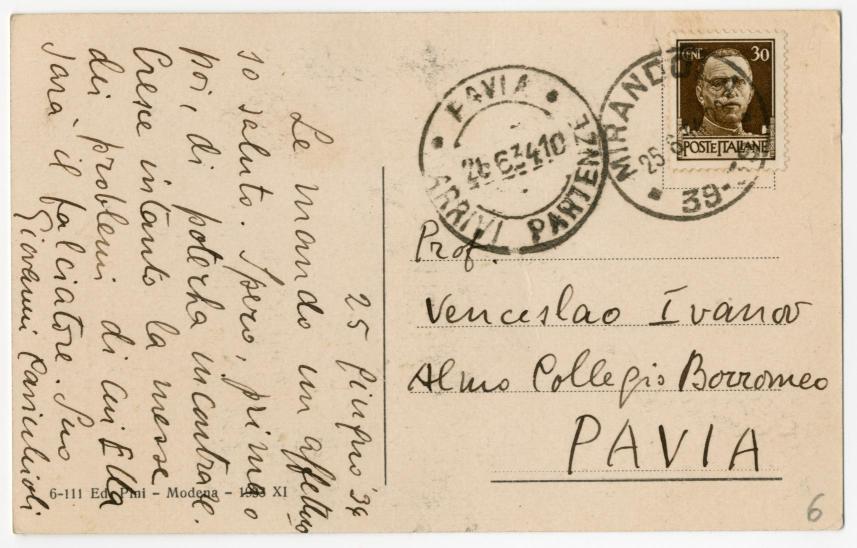 25 Giugno '34
Le mando un affettuo
so saluto. Spero, prima o
poi, di poterLa incontrare.
Cresce intanto la messe
dei problemi di cui Ella
sarà il falciatore. Suo
Giovanni
CENT 30
POSTE ITALIANE
PAVIA
26.6.34 10
ARRIVI PARTENZE
MIRANDO
25 6
39-
Prof.
Venceslao Ivanov
Almo Collegio Borromeo
PAVIA
6-111 Ed. Pini - Modena - 1933 XI
6